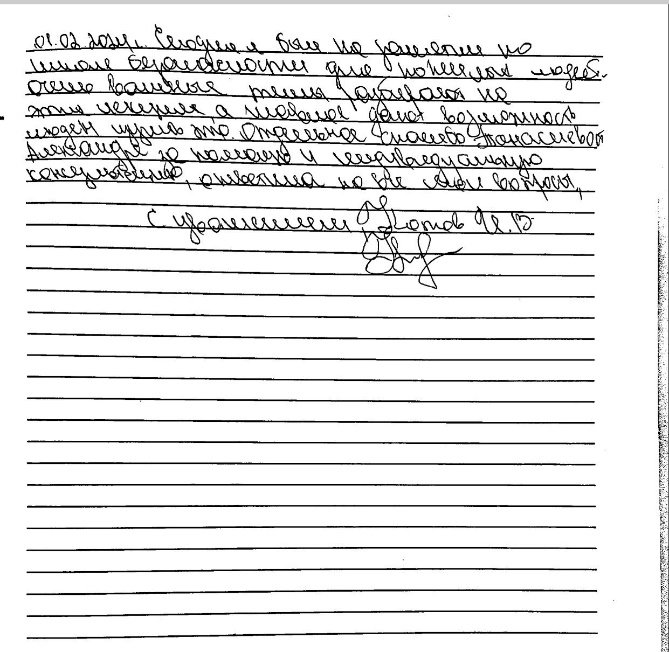 01.02.2024г. Сегодня я был на занятии по
школе безопасности для пожилых людей.
очень важные темы разбирают на
этих лекциях, а главное дают возможность
людям это Отдельное спасибо
Александре за помощь и индивидуальную
консультацию, ответила на все мои вопросы,
С уважением И.В